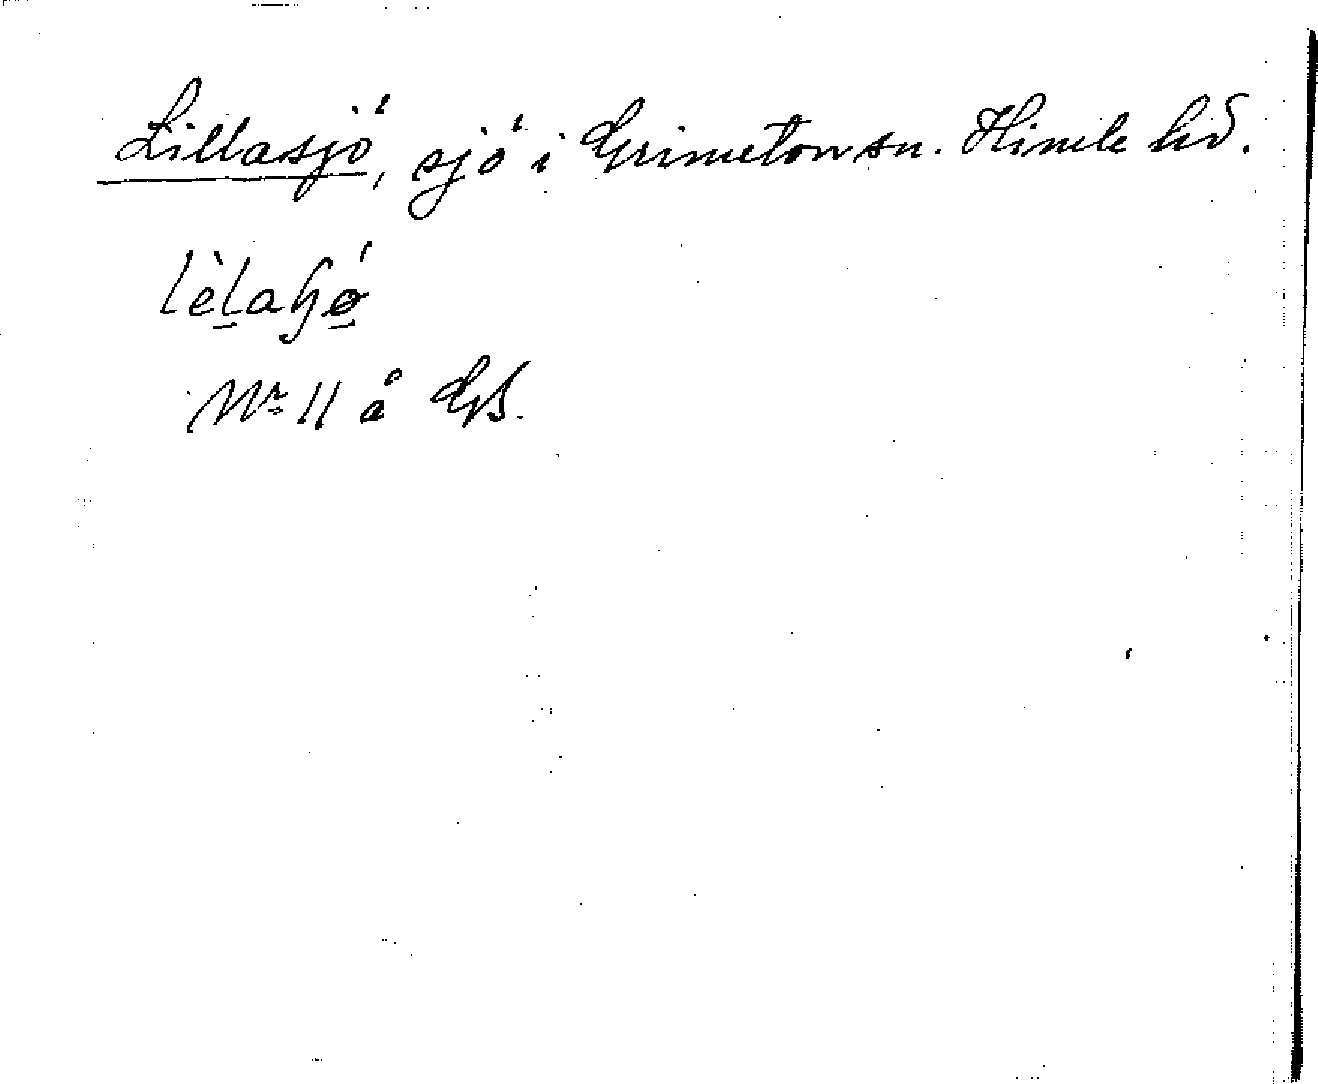 Lillasjö, sjö i Grimeton sn. Himle hd.
lèlaɧø
Nr 11 å GS.